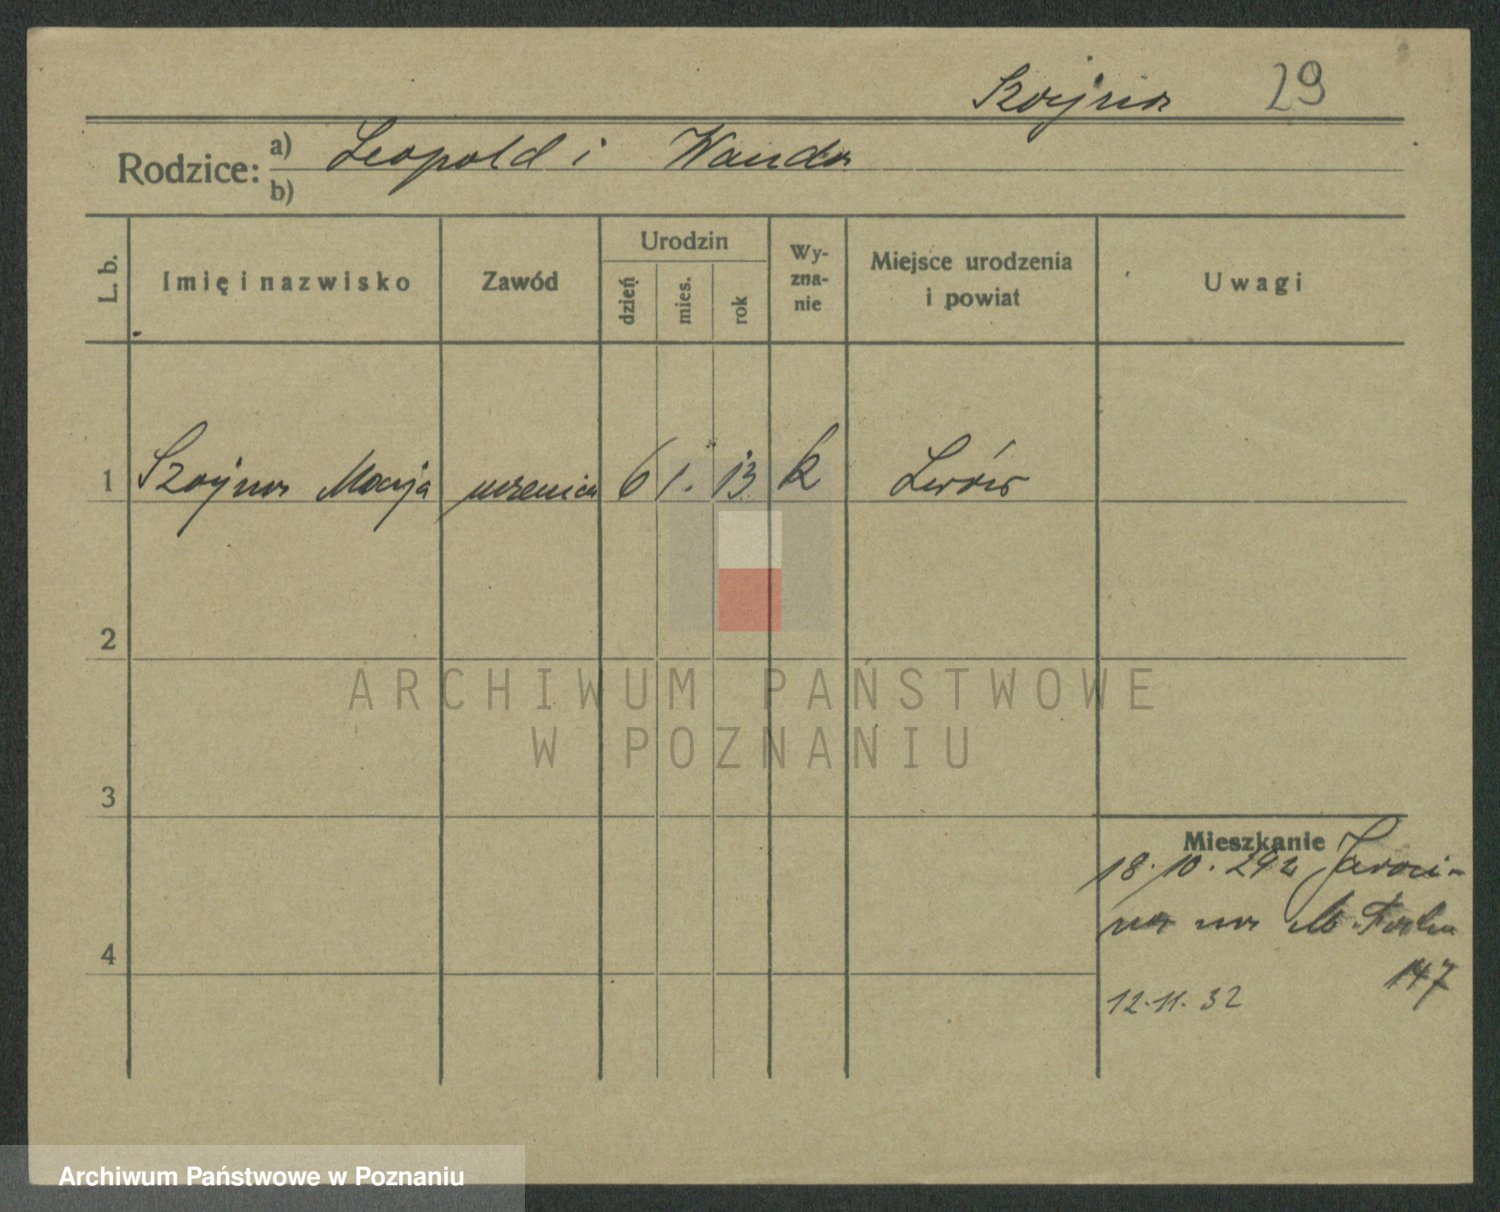 Szajna 29
Rodzice: a) Leopold i Wanda
b)
L. b.
Imię i nazwisko
Zawód
Urodzin
dzień
mies.
rok
Wy-
zna-
nie
Miejsce urodzenia
i powiat
Uwagi
1 Szajna Marja uczenica 6 1. 13 k Lwów
2
3
4
Mieszkanie
18.10.29 z Jaroci-
na na
147
12.11.32
ARCHIWUM PAŃSTWOWE
W POZNANIU
Archiwum Państwowe w Poznaniu